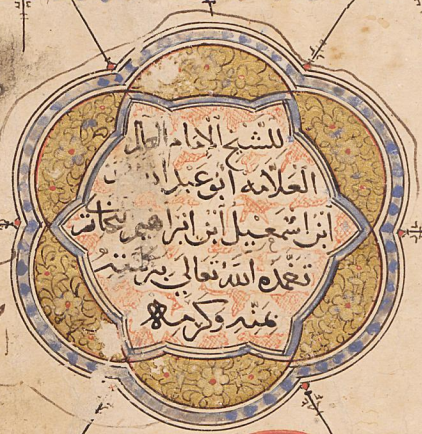 للشيخ الإمام العالم
العلامه ابو عبد
ابن اسمعيل ابن ابراهيم البخاري
تغمده الله تعالى برحمته
بمنه وكرمه